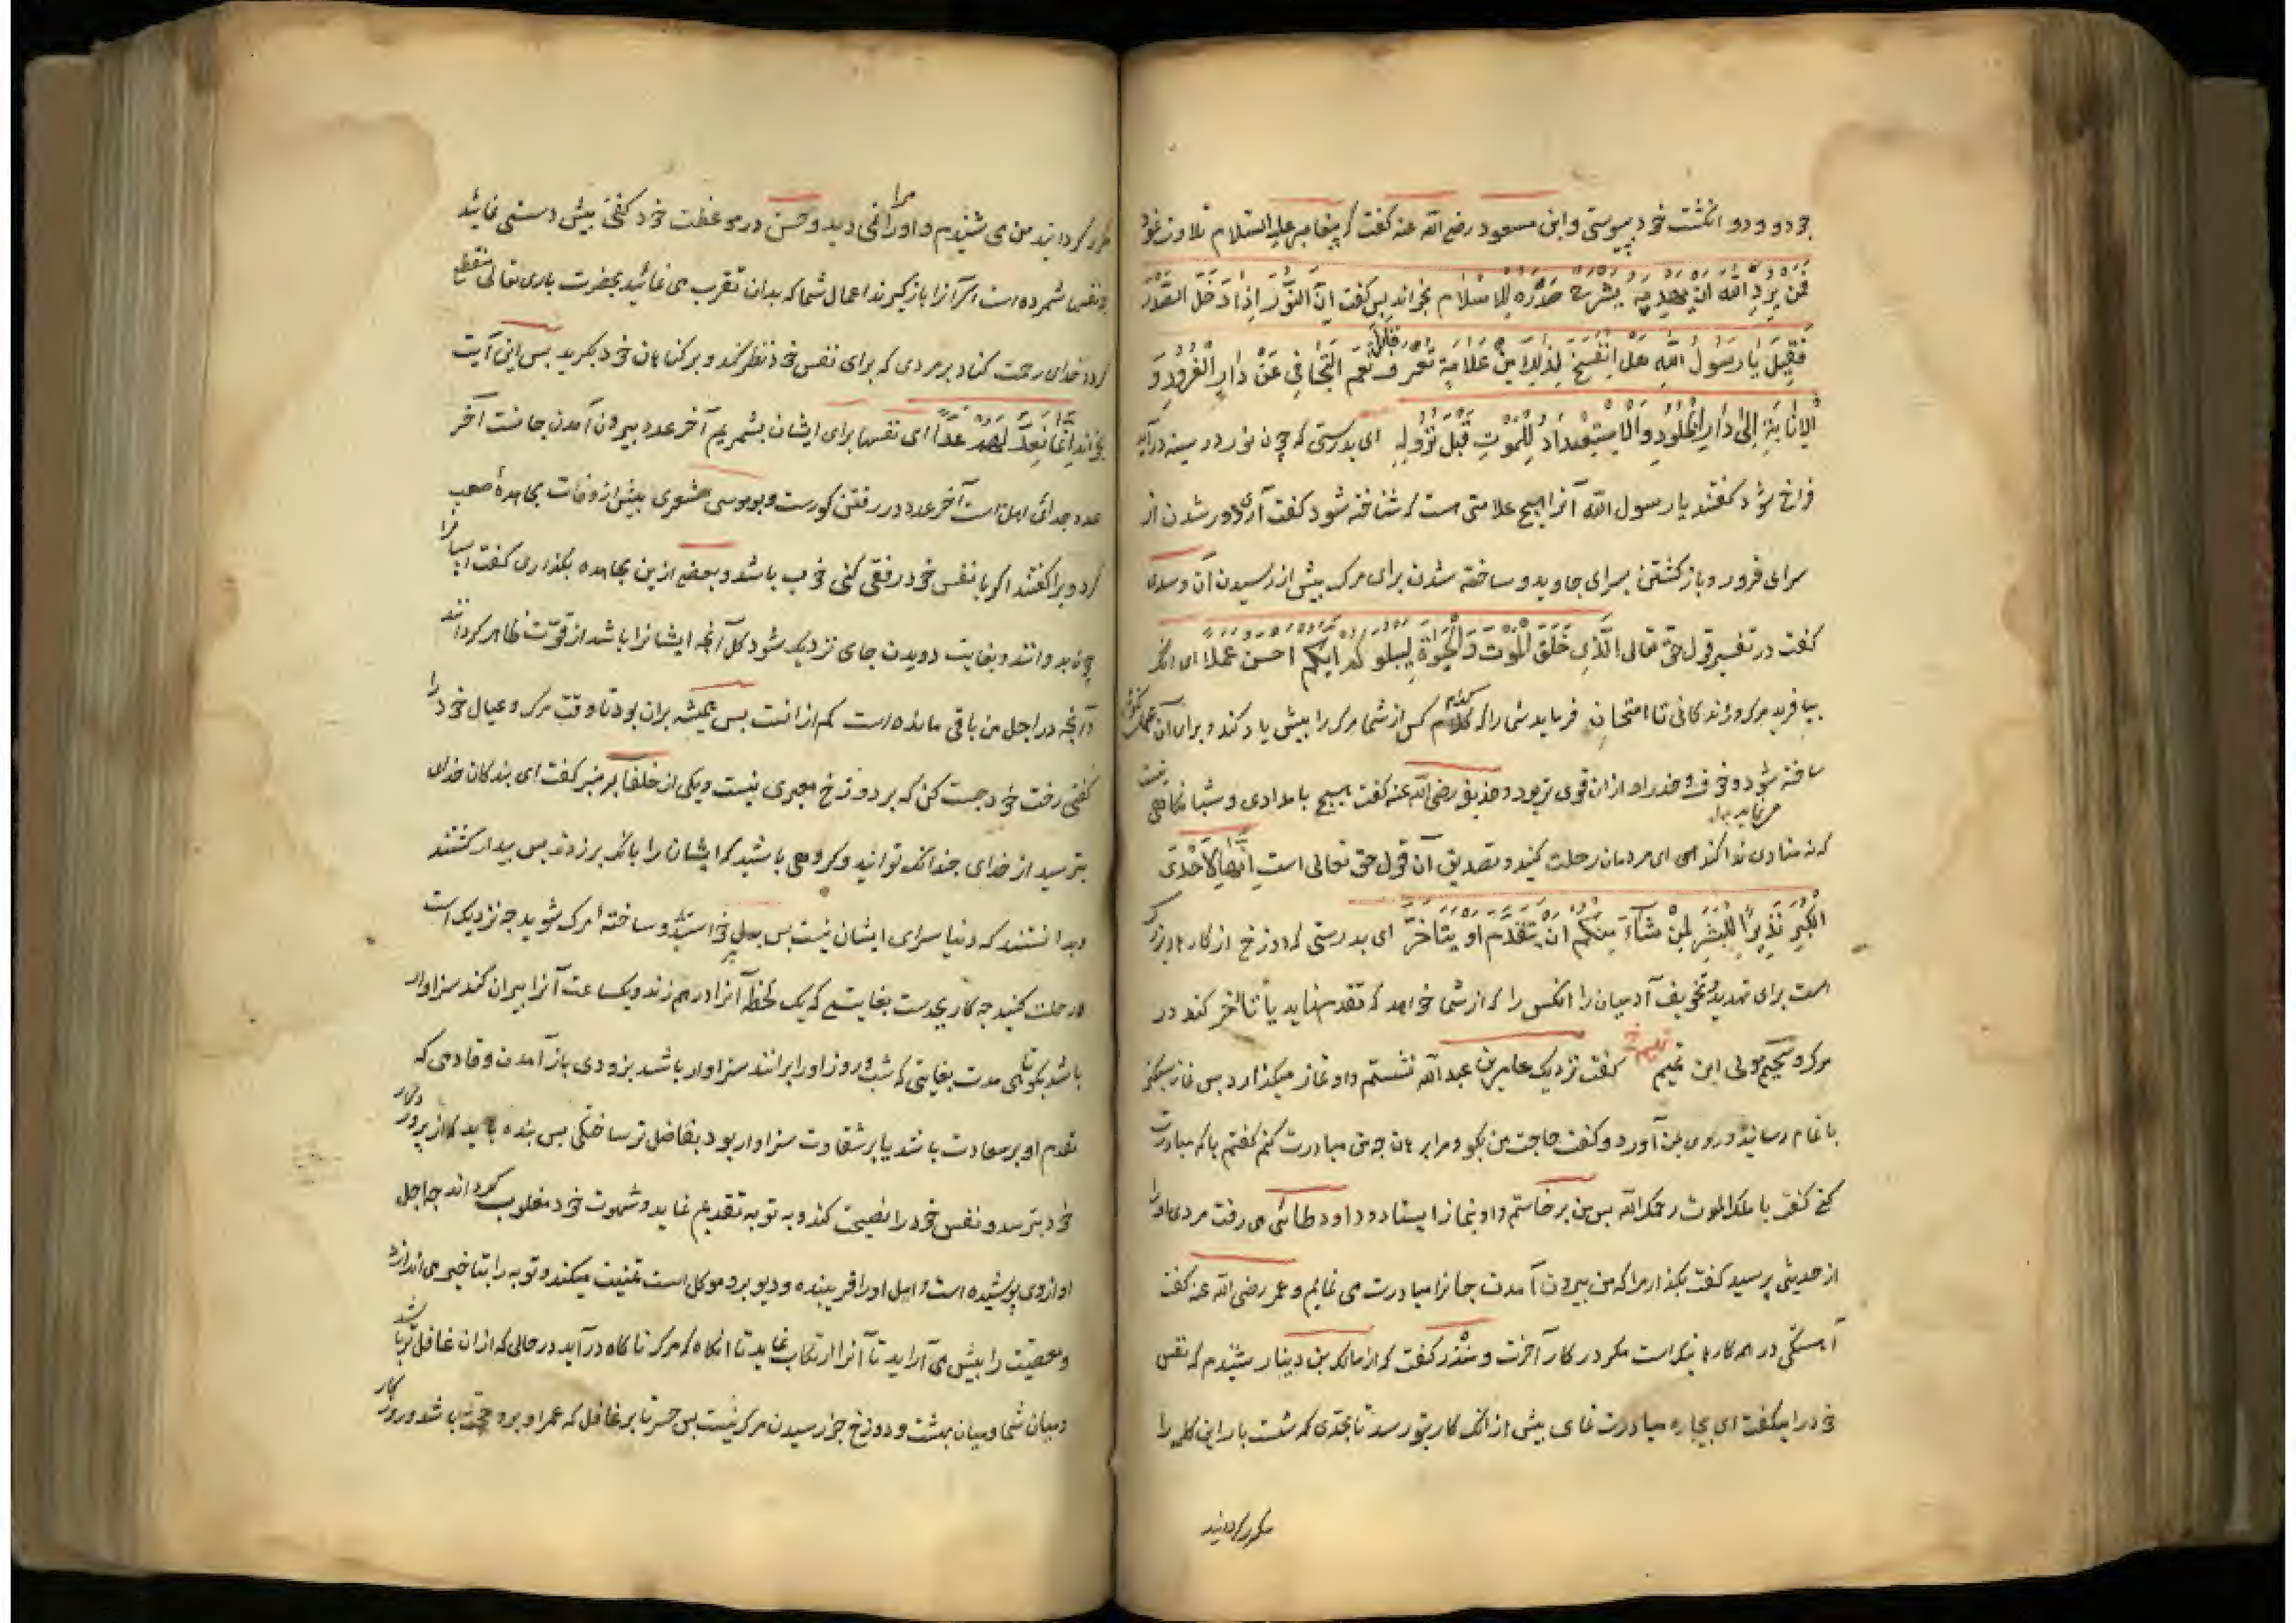 خود و دو انگشت خود پیوستی و ابن مسعود رضی الله عنه گفت که پیغامبر علیه السلام تلاوت نمود
فَمَن یُرِدِ اللّه اَن یَهدِیَهُ یَشرَح صَدرَهُ لِلاِسلام بخواند پس گفت اِنَّ النُّورَ اِذا دَخَلَ الصَّدرَ
فَقِیلَ یا رَسُولَ اللّهِ هَل لِذلِکَ مِن عَلامَةٍ تُعرَف فقال نَعَم التَّجافِی عَن دارِ الغُرُورِ وَ
الاِنابَةِ اِلی دارِ الخُلُودِ وَالاِستِعدادُ لِلمَوتِ قَبلَ نُزُولِهِ ای بدرستی که چون نور در سینه درآید
فراخ شود گفتند یا رسول الله آنرا هیچ علامتی است که شناخته شود گفت آری دور شدن از
سرای غرور و بازگشتن بسرای جاوید و ساخته شدن برای مرگ پیش از رسیدن آن و سدی
گفت در تفسیر قول حق تعالی الَّذِی خَلَقَ المَوتَ وَ الحَیوةَ لِیَبلُوَکُم اَیُّکُم احسن عملا ای آنکه
بیافرید مرگ و زندگانی تا امتحان فرماید شما را که کدام کس از شما مرگ را بیش یاد کند و برای آن
ساخته شود و خوف و حذر او ازان قوی تر بود و حذیفه رضی الله عنه گفت هیچ بامدادی و شبانگاهی نیست
که نه منادی ندا کند ای مردمان رحلت کنید و تصدیق آن قول حق تعالی است اِنَّها لَاِحدَی
الکُبَرِ نَذِیراً لِلبَشَرِ لِمَن شاءَ مِنکُم ان یَتَقَدَّمَ او یَتَاَخَّرَ ای بدرستی که دوزخ از کارهای بزرگ
است برای تهدید و تخویف آدمیان را آنکس را که از شما خواهد که تقدم نماید یا تاخر کند در
مرگ و سحیم مولی ابن تمیم گفت نزدیک عامر بن عبد الله نشستم و او نماز میگذارد پس نماز سبک
با تمام رسانید و روی بمن آورد و گفت حاجت من بگو و مرا برهان چه من مبادرت کنم گفتم با که مبادرت
کنی گفت با ملک الموت رحمک الله پس من برخاستم و او بنماز ایستاد و داود طائی می رفت مردی او را
از حدیثی پرسید گفت بگذار مرا که من بیرون آمدن جانرا مبادرت می نمایم و عمر رضی الله عنه گفت
آهستگی در همه کارها نیک است مگر در کار آخرت و منذر گفت که از مالک بن دینار شنیدم که نفس
خود را میگفت ای بیچاره مبادرت نمای پیش از آنکه کار بتو رسد تا بحدی که شصت بار این کلمه را
مکرر گردانید
مکرر گردانید من می شنیدم و او مرا نمی دید و حسن در موعظت خود گفتی پیش دستی نمائید
و نفس شمرده است اگر آنرا بازگیرند اعمال شما که بدان تقرب می نمائید بحضرت باری تعالی منقطع
گردد خدای رحمت کناد بر مردی که برای نفس خود نظر کند و بر گناهان خود بگرید پس این آیت
بخواند اِنَّما نَعُدُّ لَهُم عَدّاً ای نفسها برای ایشان بشمریم آخر عدد بیرون آمدن جانست آخر
عدد جدائی اهل است آخر عدد در رفتن گورست و بوموسی اشعری پیش از وفات مجاهدهٔ صعب
کرد ویرا گفتند اگر با نفس خود رفقی کنی خوب باشد و بعضی ازین مجاهده بگذاری گفت اسپانرا
چون بدوانند و بغایت دویدن جای نزدیک شود کل آنچه ایشانرا باشد از قوّت ظاهر گردانند
و آنچه در اجل من باقی مانده است کم از آنست پس همیشه بران بود تا وقت مرگ و عیال خود را
گفتی رخت خود چست کن که بر دوزخ معبری نیست و یکی از خلفا بر منبر گفت ای بندگان خدای
بترسید از خدای چندانکه توانید و گروهی باشید که ایشان را بانگ برزدند پس بیدار گشتند
و بدانستند که دنیا سرای ایشان نیست پس بدل خواستند و ساختهٔ مرگ شوید چه نزدیک است
و رحلت کنید چه کار بجدست بغایتی که یک لحظه آنرا درهم زند و یکساعت آنرا ویران کند سزاوار
باشد بکوتاهی مدت بغایتی که شب و روز او را برانند سزاوار باشد بزودی بازآمدن و قادمی که
تقدم او بر سعادت باشد یا بر شقاوت سزاوار بود بفاضل تر ساختگی پس بنده باید که از پروردگار
خود بترسد و نفس خود را نصیحت کند و به توبه تقدیم نماید و شهوت خود مغلوب گرداند چه اجل
او از وی پوشیده است و امل او را فریبنده و دیو برو موکل است تمنیت میکند و توبه را بتاخیر می اندازد
و معصیت را پیش می آراید تا آنرا ارتکاب نماید تا آنگاه که مرگ ناگاه درآید در حالی که ازان غافل تر باشد
و میان شما و میان بهشت و دوزخ جز رسیدن مرگ نیست پس حسرتا بر غافل که عمر او برو حجت باشد و روزگار